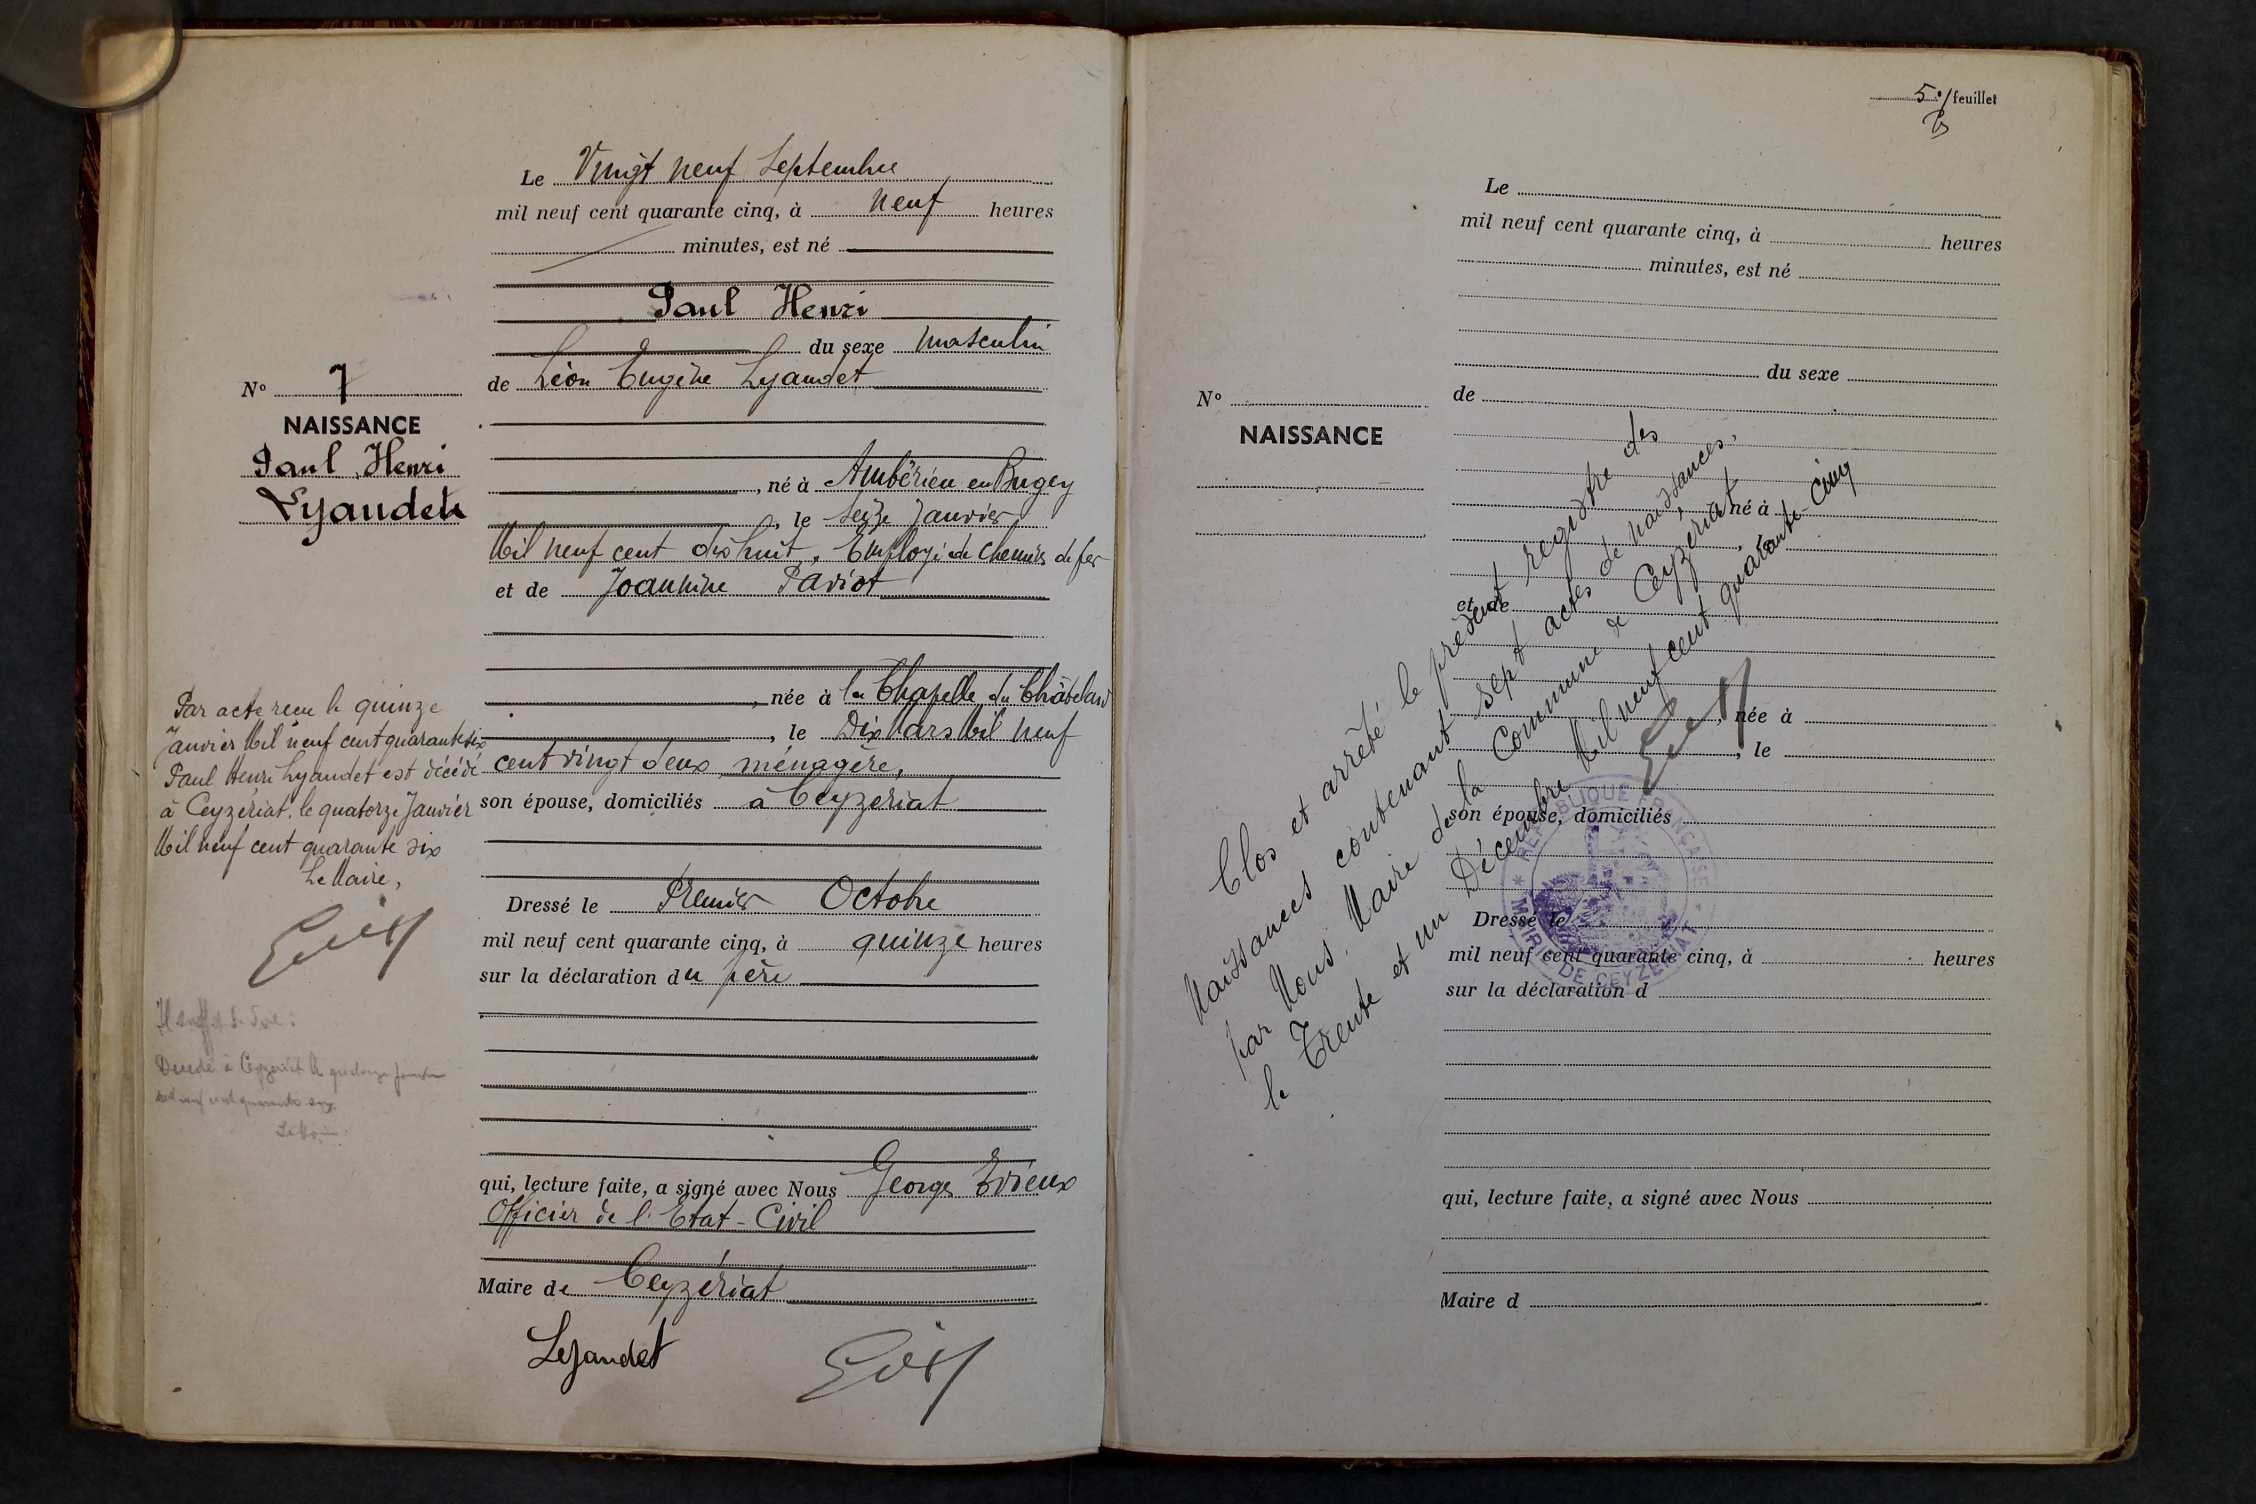 Le Vingt neuf Septembre
mil neuf cent quarante cinq, à neuf heures
minutes, est né
Paul Henri
du sexe masculin
de Léon Eugène Lyaudet
N° 7
NAISSANCE
Paul Henri
Lyaudet
, né à Ambérieu en Bugey
, le seize Janvier
Mil neuf cent dix huit, Employé de chemins de fer
et de Joannine Paviot
, née à la Chapelle du Châtelard
, le Dix Mars Mil neuf
cent vingt deux, ménagère,
son épouse, domiciliés à Ceyzeriat
Par acte reçu le quinze
Janvier Mil neuf cent quarante six
Paul Henri Lyaudet est décédé
à Ceyzériat, le quatorze Janvier
Mil neuf cent quarante six
Le Maire,
Dressé le Premier Octobre
mil neuf cent quarante cinq, à quinze heures
sur la déclaration du père
Décédé à Ceyzeriat le quatorze Janvier
mil neuf cent quarante six
Le Maire
qui, lecture faite, a signé avec Nous Georges Evieux
Officier de l'Etat-Civil
Maire de Ceyzériat
Lyaudet
5e/feuillet
Le
mil neuf cent quarante cinq, à heures
minutes, est né
du sexe
de
N°
NAISSANCE
, né à
, le
et de
, née à
, le
son épouse, domiciliés
Dressé le
mil neuf cent quarante cinq, à heures
sur la déclaration d
qui, lecture faite, a signé avec Nous
Maire d
Clos et arrêté le présent registre des
Naissances contenant sept actes de naissances.
par Nous. Maire de la Commune de Ceyzériat
le Trente et un Décembre Mil neuf cent quarante-cinq
RÉPUBLIQUE FRANÇAISE
MAIRIE DE CEYZERIAT